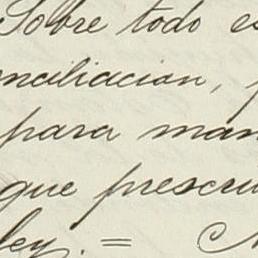 Sobre todo es
nciliacion, p
para man
que prescri
ley. =